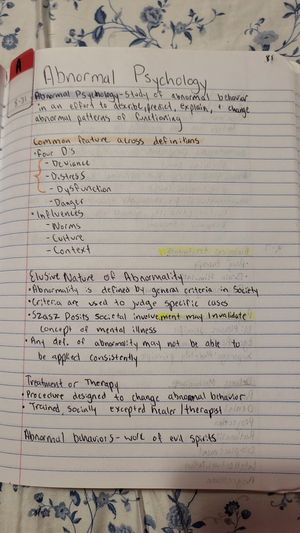 A
81
Abnormal Psychology
8-21
Abnormal Psychology-study of abnormal behavior
in an effort to describe, predict, explain, + change
abnormal patterns of functioning
Common feature across definitions
• Four D's
- Deviance
- Distress
- Dysfunction
- Danger
• Influences
- Norms
- Culture
- Context
Elusive Nature of Abnormality
• Abnormality is defined by general criteria in Society
• Criteria are used to judge specific cases
• Szasz Posits Societal involvement may invalidate
concept of mental illness
• Any def. of abnormality may not be able to
be applied consistently
Treatment or Therapy
• Procedure designed to change abnormal behavior
• Trained, socially excepted healer/therapist
Abnormal behaviors - work of evil spirits